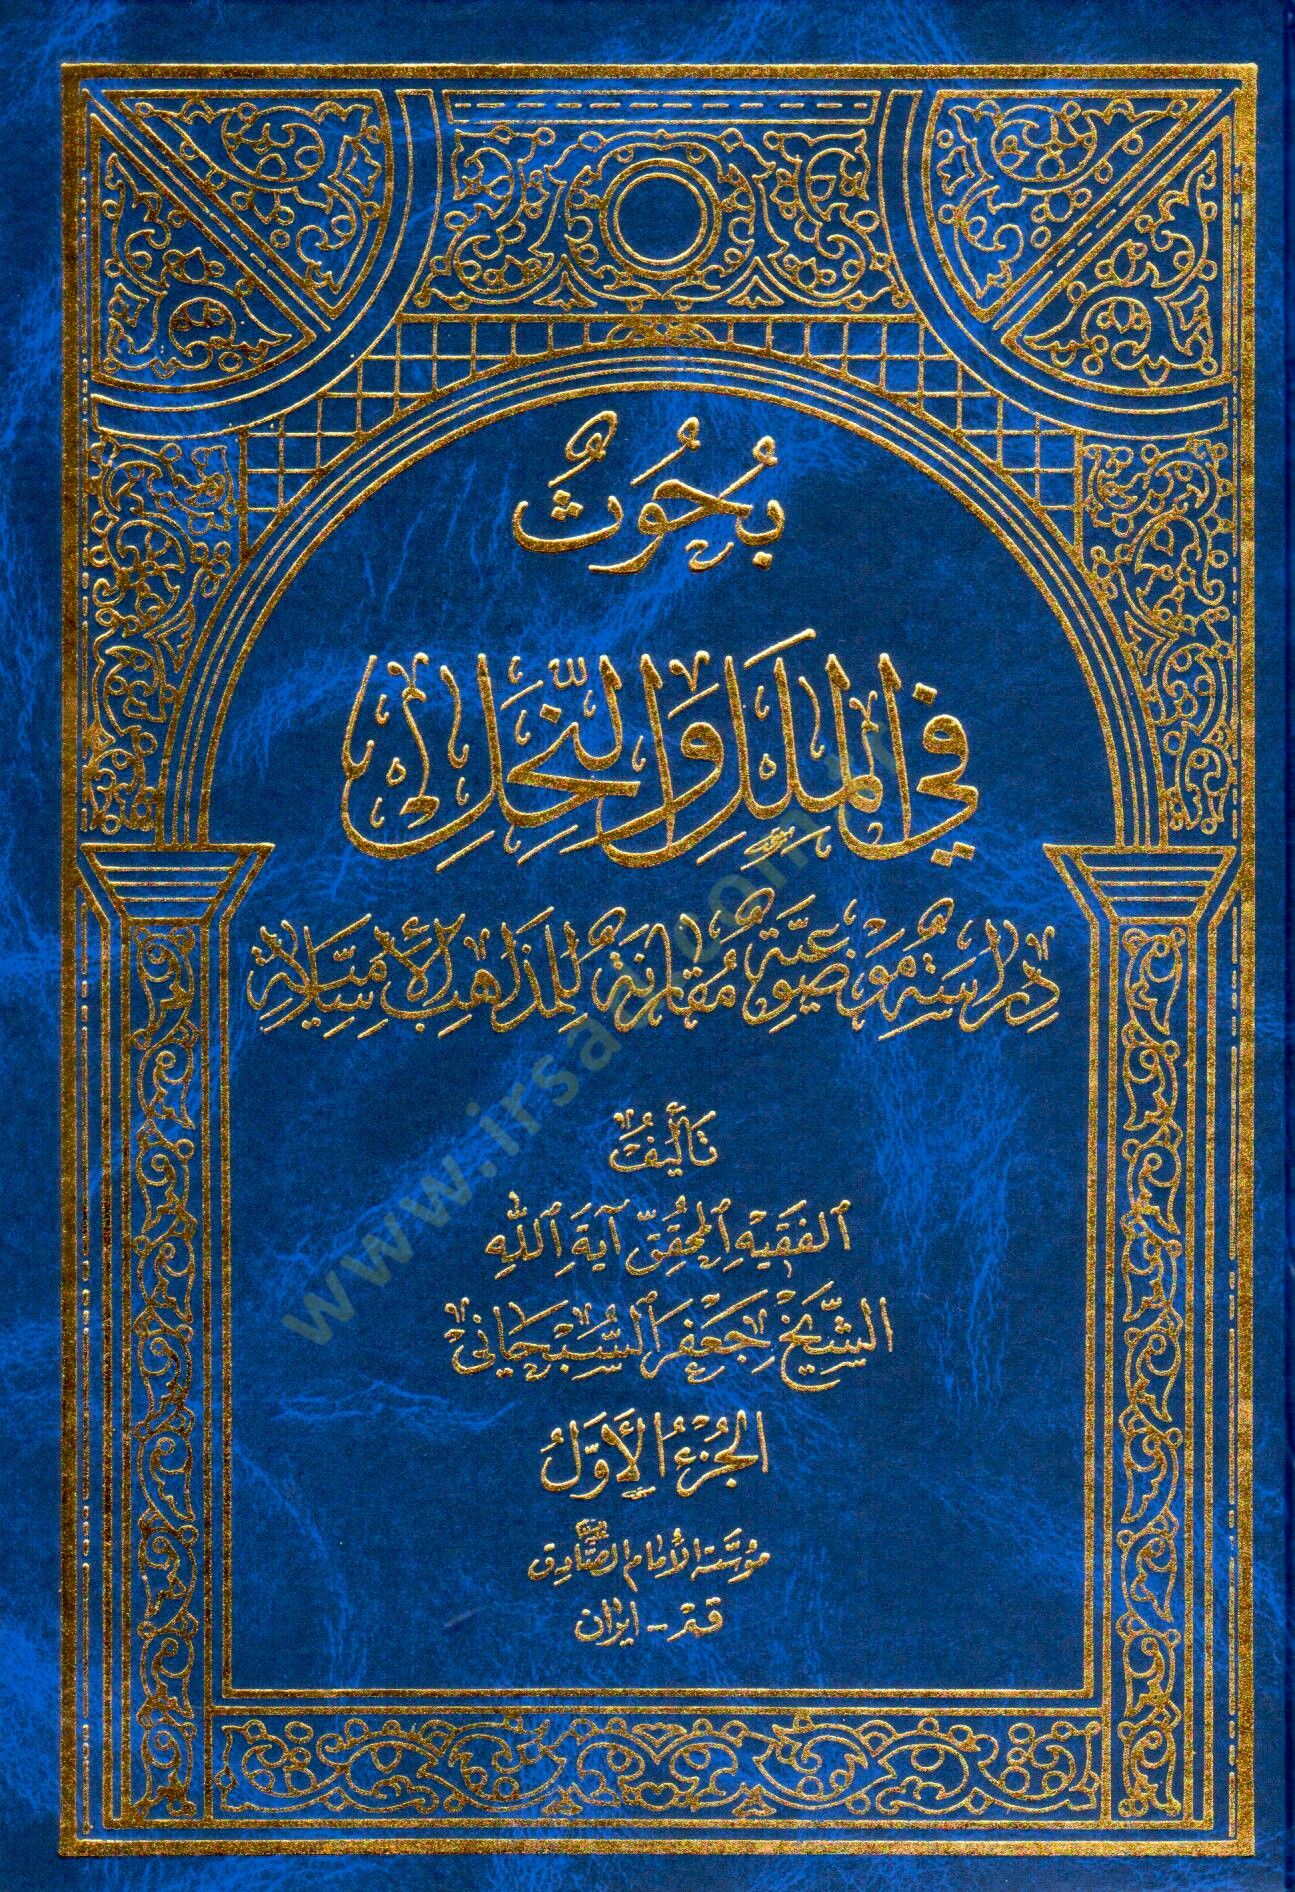 بُحُوثٌ
في المِلَلِ وَالنِّحَلِ
دِرَاسَةٌ مَوْضُوعِيَّةٌ مُقَارِنَةٌ لِلمَذَاهِبِ الإِسْلَامِيَّةِ
تَأْلِيفُ
الفَقِيهِ المُحَقِّقِ آيَةِ اللهِ
الشَّيْخِ جَعْفَرِ السُّبْحَانِيّ
الجُزْءُ الأَوَّلُ
مؤسّسة الإمام الصّادق
قم - ايران
www.irsad.com.tr